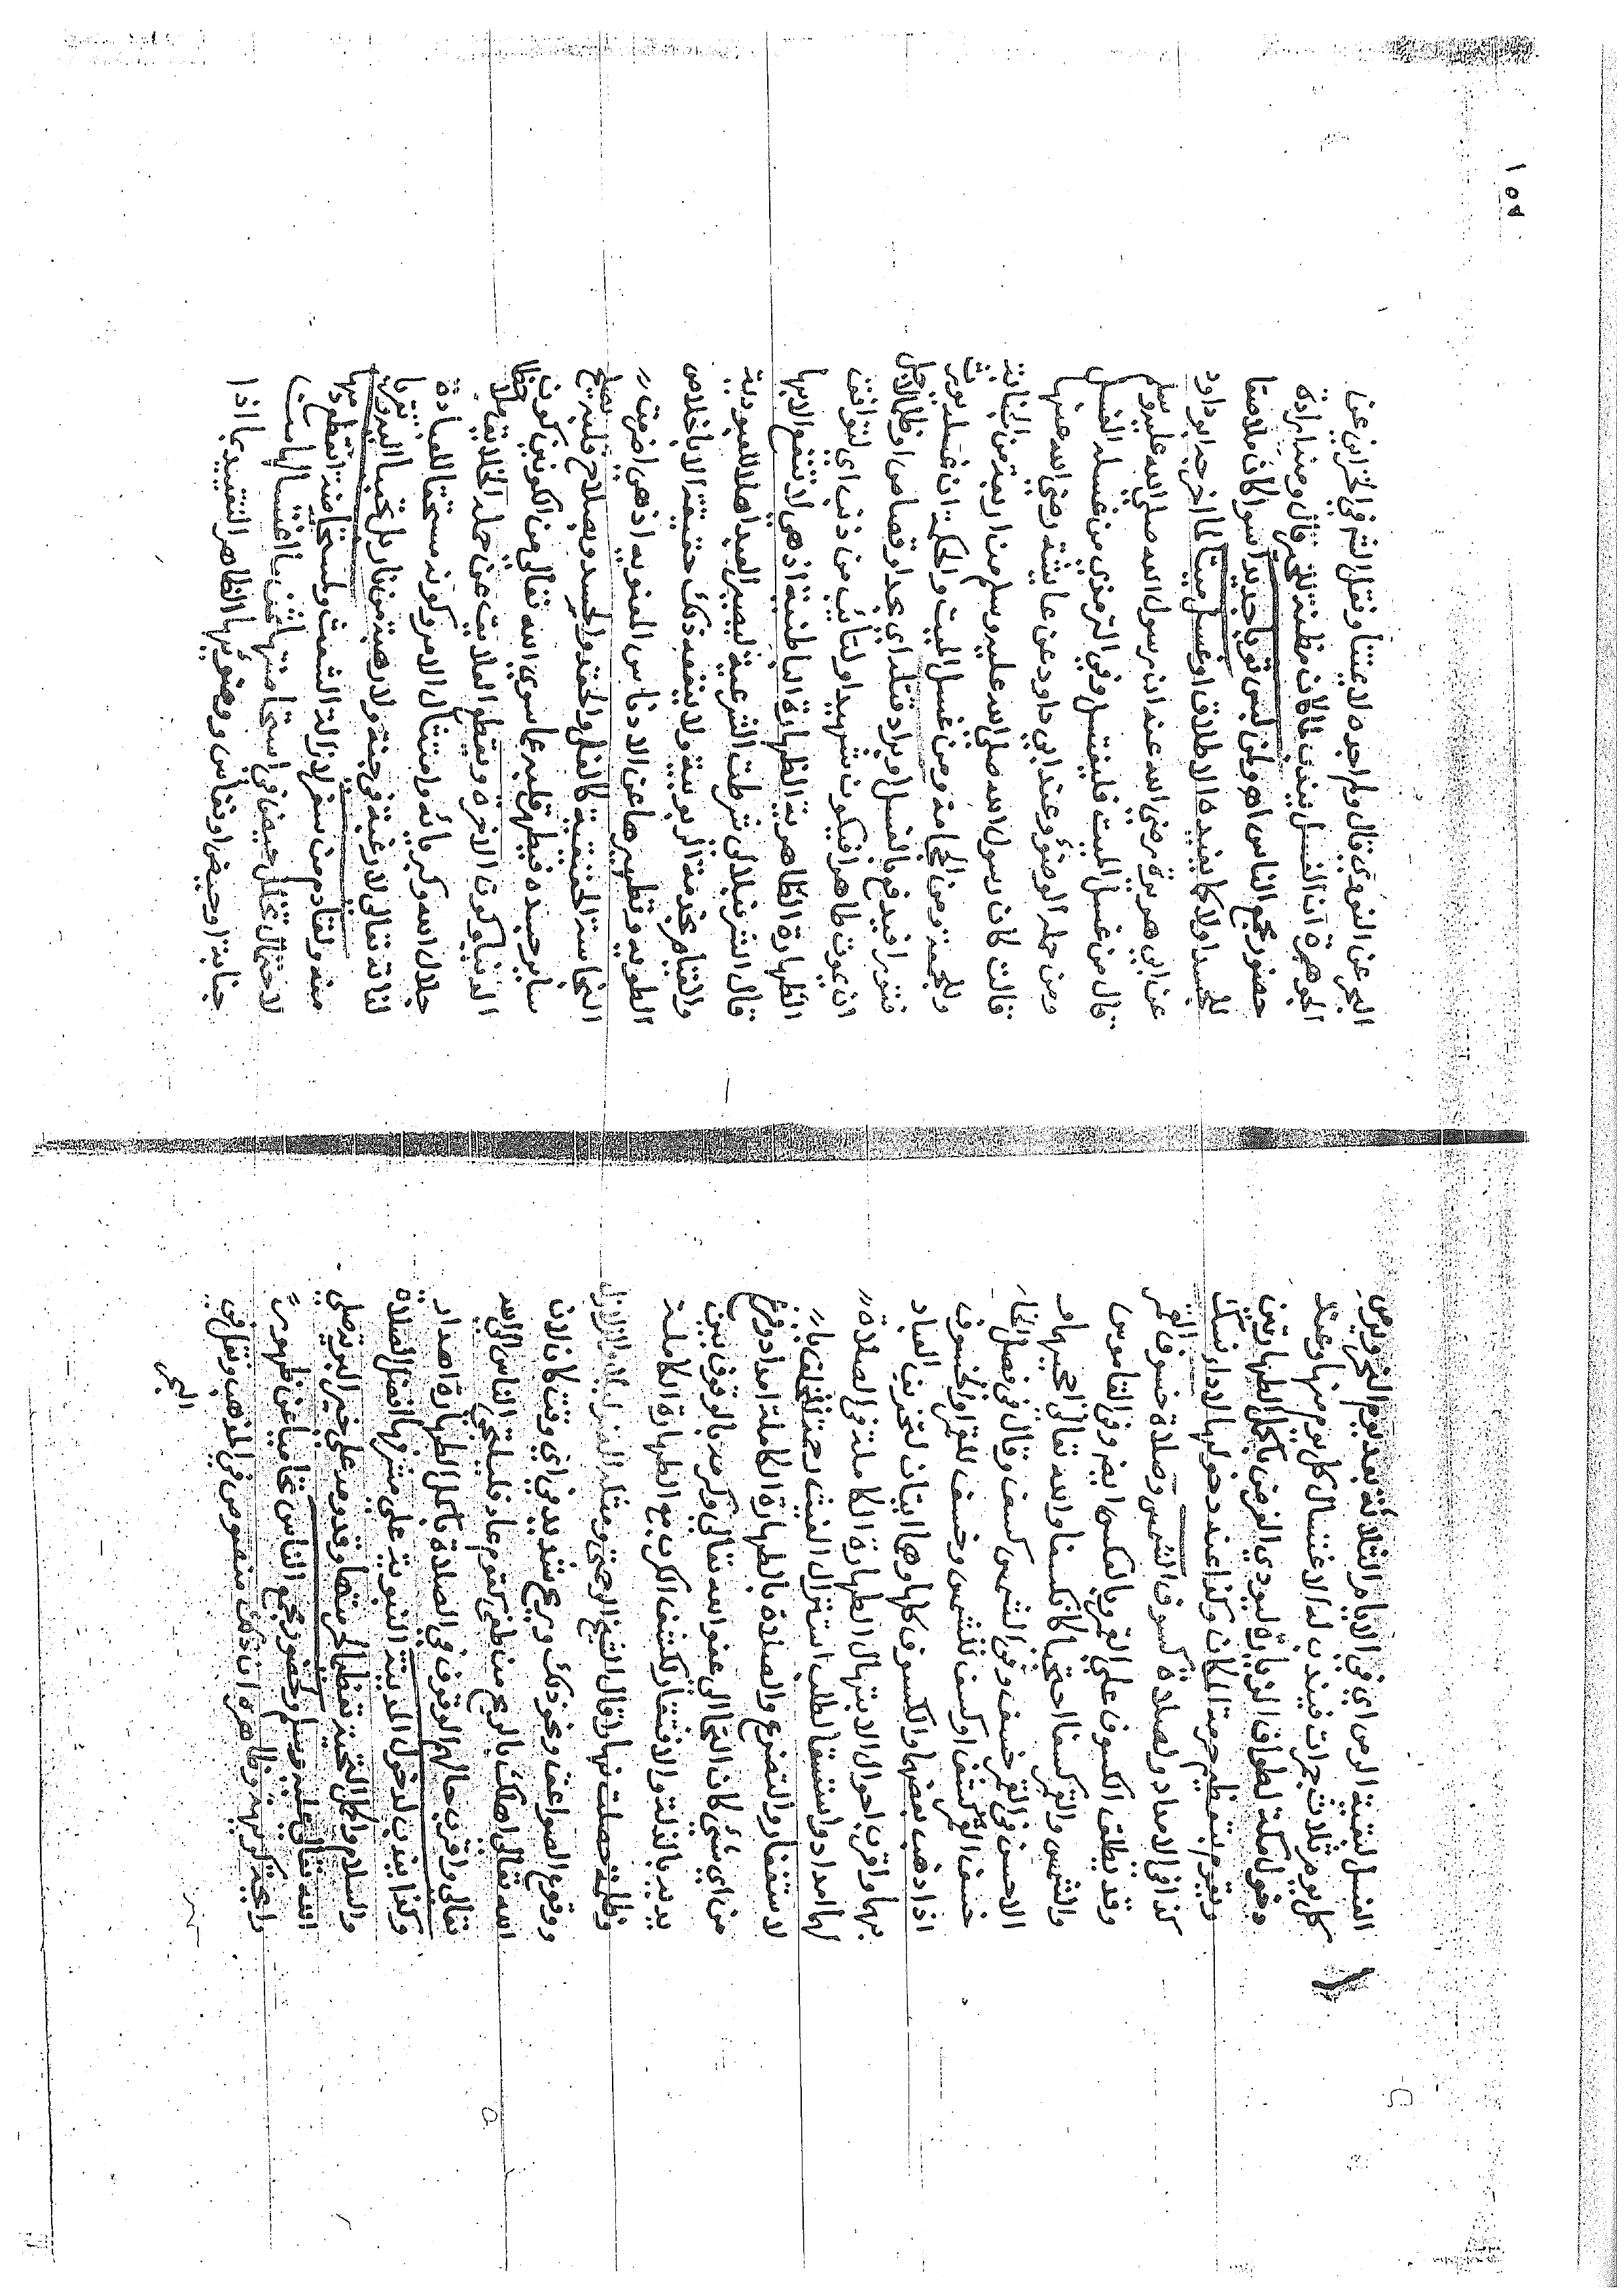 الغسل لبقية الرمي اي في الايام الثلاثة بعد يوم النحر ويرمي
كل يوم ثلاث جمرات فيندب له الاغتسال كل يوم منها وعند
دخول مكة لطواف الزيارة ليؤدي الفرض باكمل الطهارتين
ويقوم بتعظيم حرمة المكان وكذا عند دخولها لاداء نسك
كذا في الامداد ولصلاة كسوف الشمس وصلاة خسوف القمر
وقد يطلق الكسوف على القمر وبالعكس ايض وفي القاموس
والشمس والقمر كسفا احتجبا كانكسفا والله تعالى احجبهما و
الاحسن في القمر خسف وفي الشمس كسفت وقال في فصل الخاء
خسف القمر كسف او كسف للشمس وخسف للقمر او الخسوف
اذا ذهب بعضهما والكسوف كلهما وهما ايتان لتخويف العباد
بهما واقرب احوال الابتهال الطهارة الكاملة في الصلاة
لها امداد واستسقا لطلب استنزال الغيث رحمة للخلق با
لاستغفار والتضرع والصلاة بالطهارة الكاملة امداد وفزع
من اي شئ كان التجا الى عفو الله تعالى وكرمه بالوقوف بين
يديه بالذلة والافتقار لكشف الكرب مع الطهارة الكاملة
وظلمة حصلت نهارا قال الشيخ الرحمتي ومثله الفزع ليلا والزلازل
ووقوع الصواعق ونحو ذلك وريح شديد من اي وقت كان لان
الله تعالى اهلك بالريح من طغى كقوم عاد فليلتجي الناس الى الله
تعالى واقرب حالهم الوقوف في الصلاة باكمل الطهارة امداد
وكذا يندب لدخول المدينة النبوية على مشرفها افضل الصلاة
والسلام واكمل التحية تعظيما لحرمتها وقدومه على خير البرية صلى
الله تعالى عليه وسلم ولحضور مجمع الناس تحاميا عن ظهور
رايحة كريهة وظاهره ان ذلك منصوص في المذهب ونقل في
البحر
١٥٩
البحر عن النووي قال ولم اجده لايمتنا ونقل الشر في الخزاين عن
الجوهرة ان الغسل يندب لمكان مظنة للتحي قال ومنه ارادة
حضور مجمع الناس اهو ولمن لبس ثوبا جديدا سوا كان ملامسا
للجسد اولا كما يفيده الاطلاق او غسل ميتا لما اخرجه ابو داود
عن ابي هريرة رضي الله عنه ان رسول الله صلى الله عليه وسلم
قال من غسل الميت فليغتسل وفي الترمذي من غسله الغسل
ومن حمله الوضوء وعند ابي داود عن عايشة رضي الله عنها
قالت كان رسول الله صلى الله عليه وسلم من اربعة من الجنابة
وللجمعة ومن الحجامة ومن غسل الميت والحكمة ان غسله يورث
فتورا فيدفع بالغسل او يراد قتله اي بحد او قصاص او ظلما لاجل
ان يموت طاهرا فيكون شهيدا ولتايب من ذنب اي لتوافق
الطهارة الظاهرية الطهارة الباطنية اذ هي لا تنتفع الا بها
قال الشرنبلالي شرطت الشرعية ليصير العبد اهلا للعبودية
والقيام بخدمة الربوبية ولا ينفعه ذلك حقيقة الا باخلاص
الطوية وتطهيرها عن الادناس المعنوية اذ هي اضر من
النجاسة الحقيقية كالغل والحقد والحسد وبصلاح قلبه يصلح
ساير جسده فيطهر قلبه عما سوى الله تعالى من الكونين كون
الدنيا وكون الاخرة ويقطع العلايق عن جملة الخلايق بملاحظة
جلال الله وكبريائه وامتثال الامر وكونه مستحقا للعبادة
لذاته تعالى لا رغبة في جنة ولا رهبة من نار
منه ولقادم من سفر لازالة الشعث ولمستحاضة انقطع دمها
لاحتمال تخلل حيض في استحاضتها
جنابة او حيض او نفاس وهو منها الظاهر التقييد بما اذا